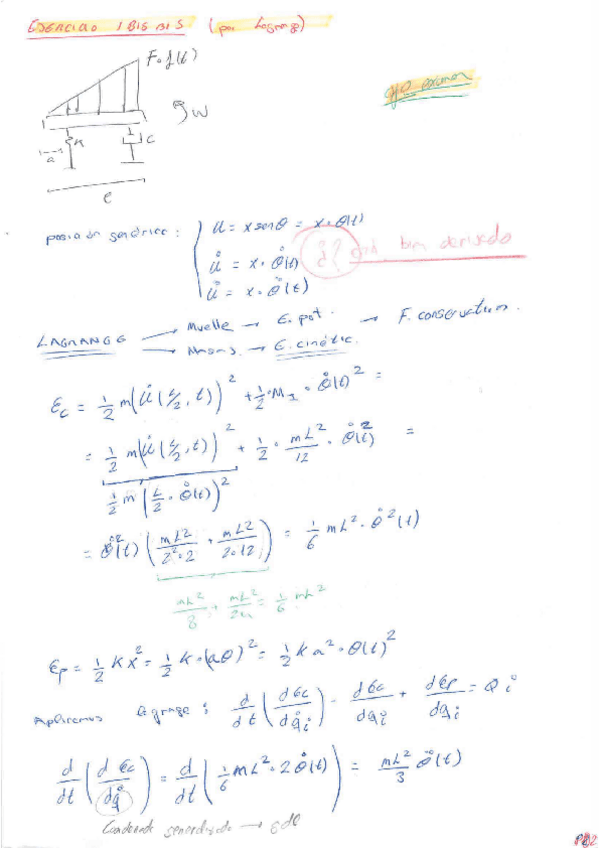 EJERCICIO 1 BIS BIS (por Lagrange)
F·f(t)
W
K
C
a
l
posición genérica: u = x senθ = x·θ(t)
u̇ = x·θ̇(t) ¿? está bien derivado
ü = x·θ̈(t)
LAGRANGE → Muelle → E. pot. → F. conservativas.
→ Masas → E. cinétic.
Ec = 1/2 m(u̇(L/2, t))² + 1/2·M_I·θ̇(t)² =
= 1/2 m(u̇(L/2, t))² + 1/2·mL²/12·θ̇(t)² =
1/2 m (L/2·θ̇(t))²
= θ̇²(t) (mL²/2²·2 + mL²/2·12) = 1/6 mL²·θ̇²(t)
mL²/8 + mL²/24 = 1/6 mL²
Ep = 1/2 Kx² = 1/2 K·(aθ)² = 1/2 Ka²·θ(t)²
Aplicamos Lagrange: d/dt (dEc/dq̇i) - dEc/dqi + dEp/dqi = Qi
d/dt (dEc/dq̇) = d/dt (1/6 mL²·2θ̇(t)) = mL²/3 θ̈(t)
→ gdl